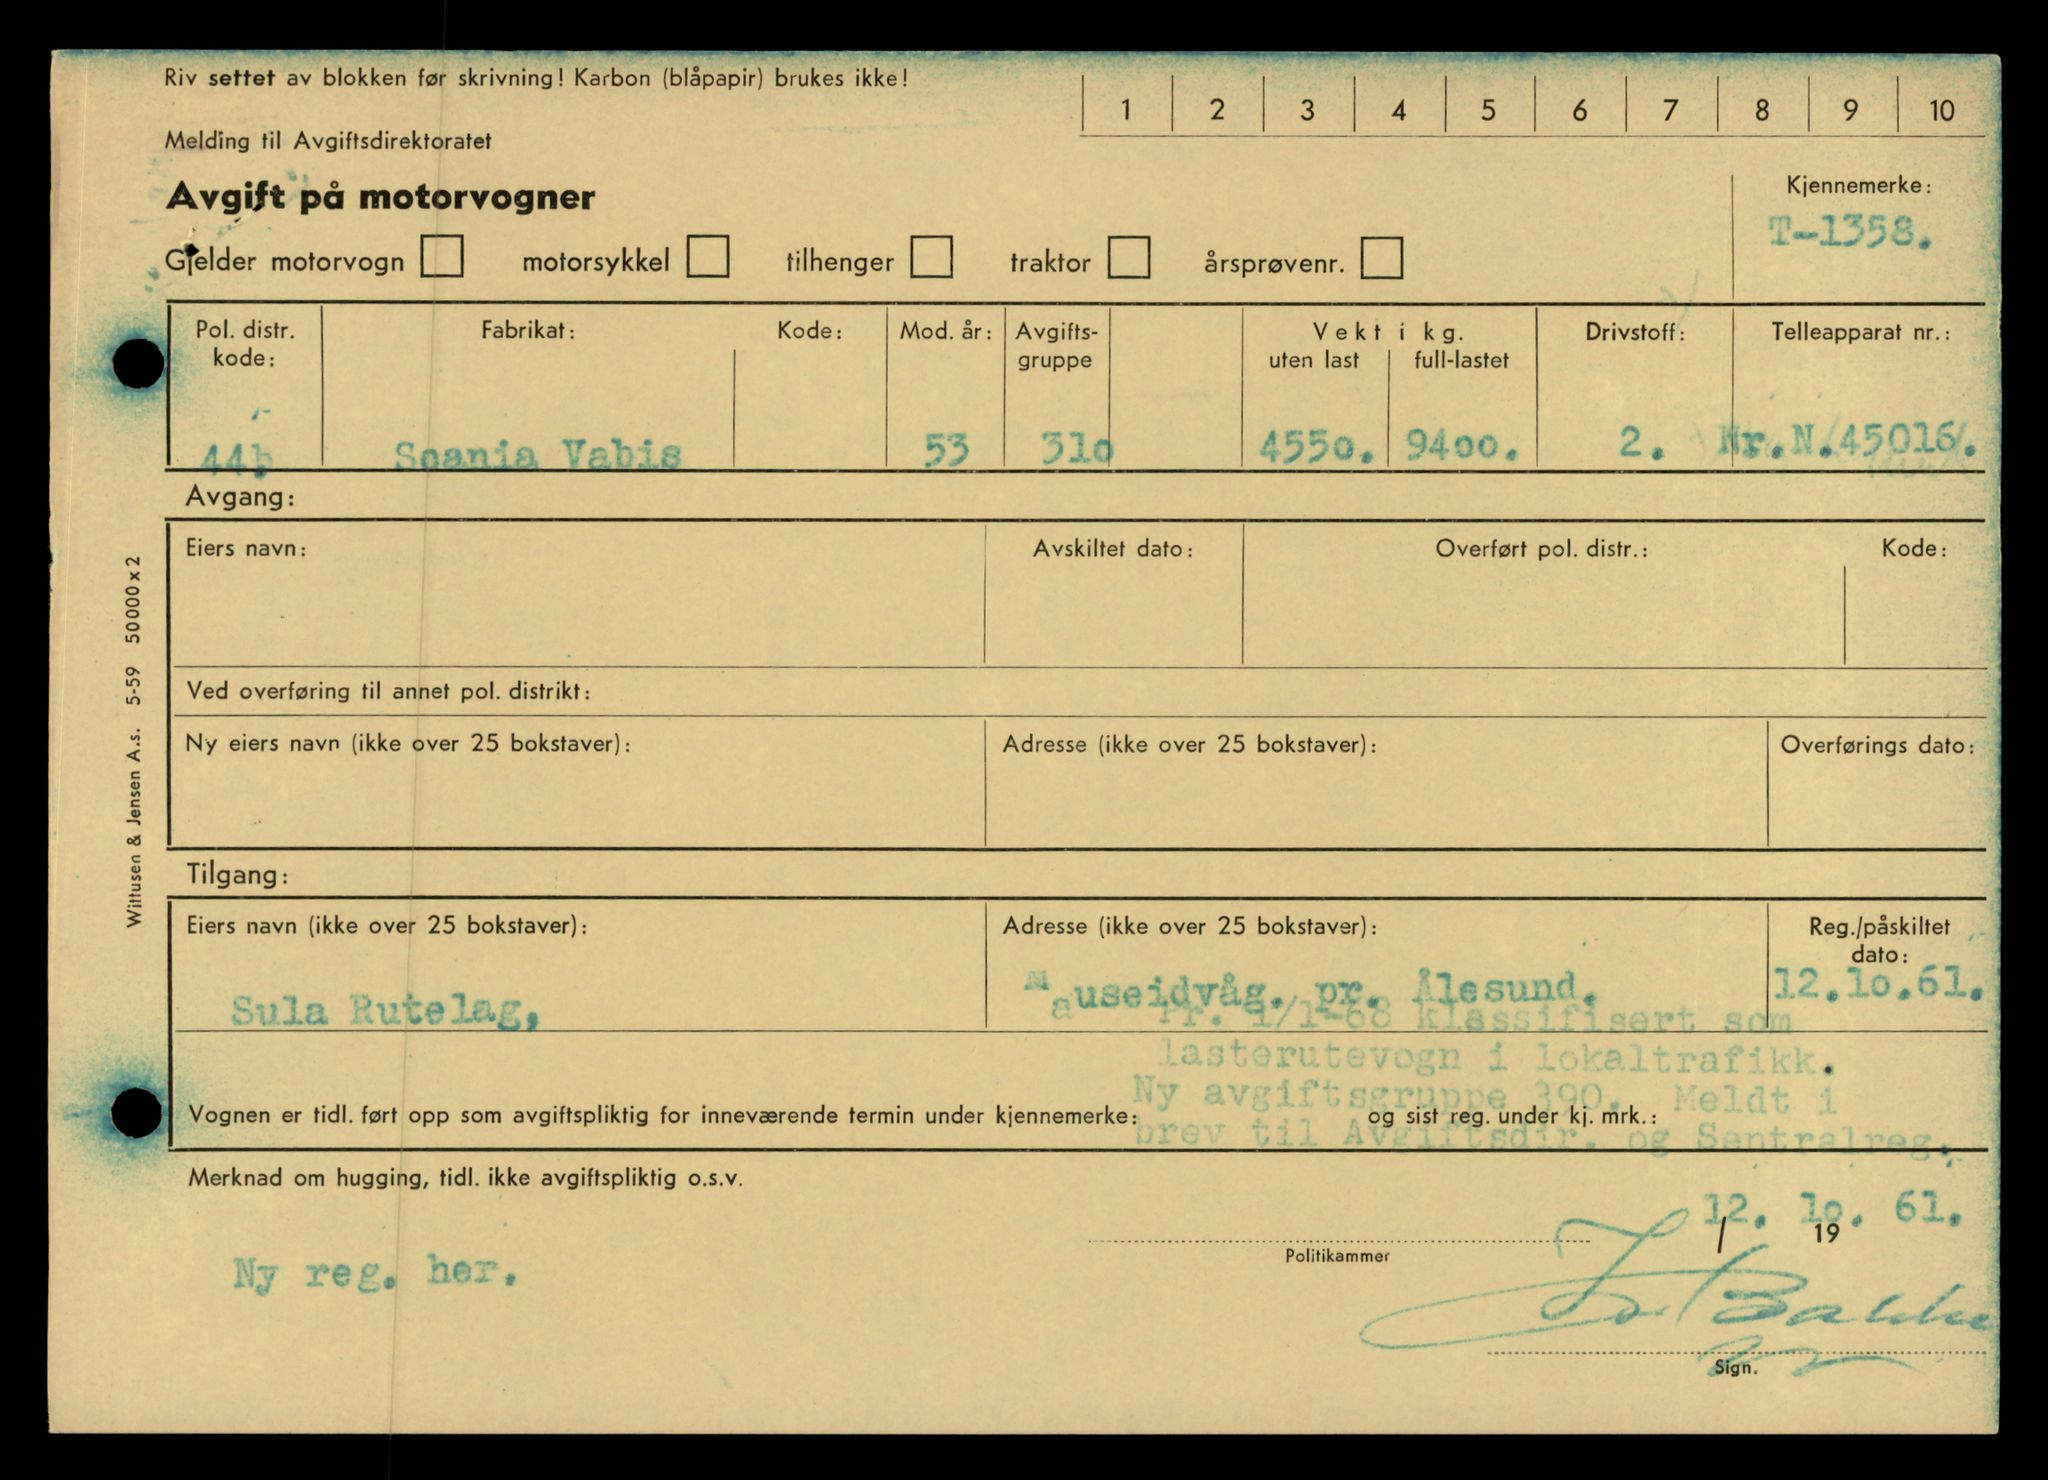 Riv settet av blokken før skrivning! Karbon (blåpapir) brukes ikke!
1 2 3 4 5 6 7 8 9 10
Melding til Avgiftsdirektoratet
Avgift på motorvogner
Kjennemerke:
T-1358.
Gjelder motorvogn motorsykkel tilhenger traktor årsprøvenr.
Pol. distr. kode: Fabrikat: Kode: Mod. år: Avgifts-gruppe Vekt i kg. uten last full-lastet Drivstoff: Telleapparat nr.:
44b Scania Vabis 53 310 4550. 9400. 2. Nr.N.45016.
Avgang:
Eiers navn: Avskiltet dato: Overført pol. distr.: Kode:
Ved overføring til annet pol. distrikt:
Ny eiers navn (ikke over 25 bokstaver): Adresse (ikke over 25 bokstaver): Overførings dato:
Tilgang:
Eiers navn (ikke over 25 bokstaver): Adresse (ikke over 25 bokstaver): Reg./påskiltet dato:
Sula Rutelag, Mauseidvåg. pr. Ålesund. 12.10.61.
Pr. 1/1-68 klassifisert som
lasterutevogn i lokaltrafikk.
Ny avgiftsgruppe 390. Meldt i
Vognen er tidl. ført opp som avgiftspliktig for inneværende termin under kjennemerke: og sist reg. under kj. mrk.:
brev til Avgiftsdir. og Sentralreg.
Merknad om hugging, tidl. ikke avgiftspliktig o.s.v.
12. 10. 61.
/ 19
Politikammer
Ny reg. her.
Bakke
Sign.
Wittusen & Jensen A.s. 5-59 50000x2